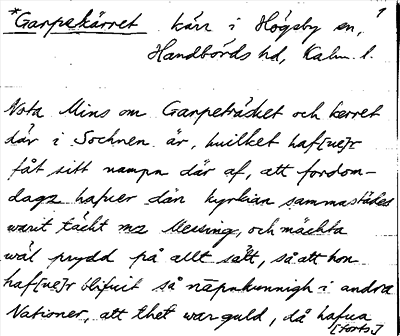 *Garpekärret kärr i Högsby sn, 1
Handbörds hd, Kalm. l.
Nota Mins om Garpeträsket och kerret
där i Sochnen är, huilket haf[ue]r
fåt sitt nampn där af, att fordom-
dagz hafuer dän kyrkian sammastädes
warit täckt mz Messing, och mächta
wäl prydd på allt sätt, så att hon
haf[ue]r blifuit så nåpnkunnigh i andra
Nationer, att thet war guld, då hafua
[forts.]